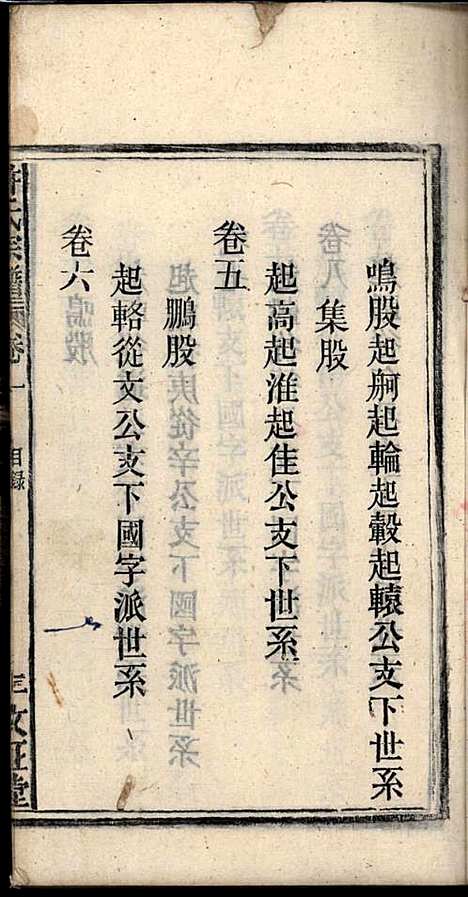 鳴股起舸起輪起轂起轅公支下世系
集股
起高起淮起佳公支下世系
卷五
鵬股
起輅從文公支下國字派世系
卷六
許氏宗譜 卷一 目錄 敦亚堂